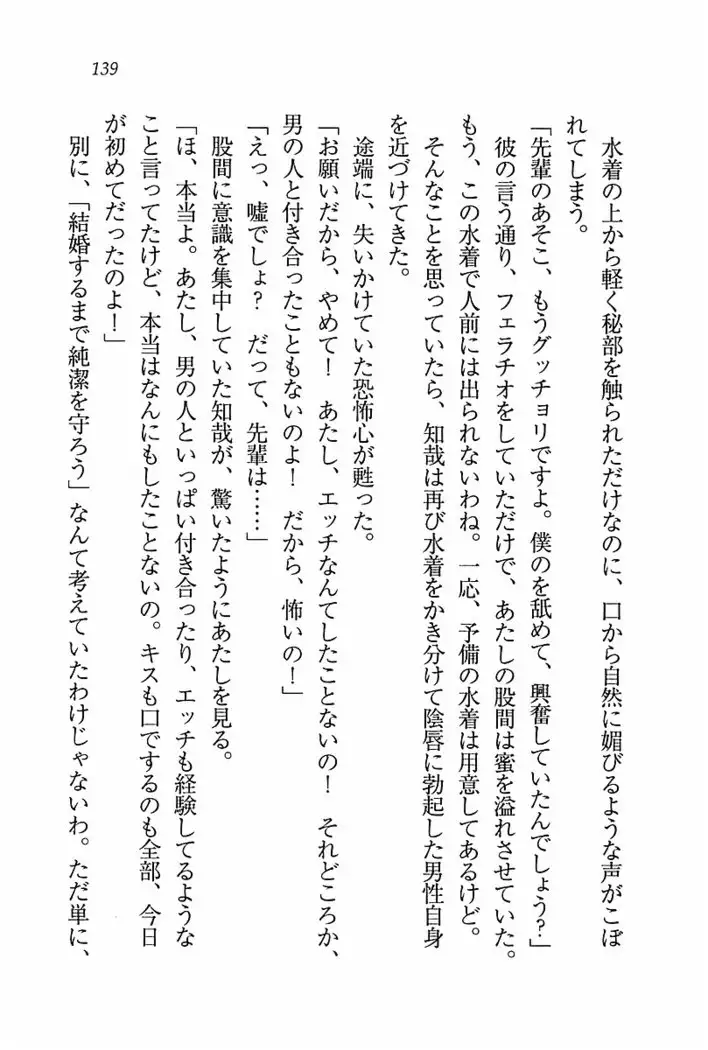 139
水着の上から軽く秘部を触られただけなのに、口から自然に媚びるような声がこぼ
れてしまう。
「先輩のあそこ、もうグッチョリですよ。僕のを舐めて、興奮していたんでしょう?」
彼の言う通り、フェラチオをしていただけで、あたしの股間は蜜を溢れさせていた。
もう、この水着で人前には出られないわね。一応、予備の水着は用意してあるけど。
そんなことを思っていたら、知哉は再び水着をかき分けて陰唇に勃起した男性自身
を近づけてきた。
途端に、失いかけていた恐怖心が甦った。
「お願いだから、やめて! あたし、エッチなんてしたことないの! それどころか、
男の人と付き合ったこともないのよ! だから、怖いの!」
「えっ、嘘でしょ? だって、先輩は……」
股間に意識を集中していた知哉が、驚いたようにあたしを見る。
「ほ、本当よ。あたし、男の人といっぱい付き合ったり、エッチも経験してるような
こと言ってたけど、本当はなんにもしたことないの。キスも口でするのも全部、今日
が初めてだったのよ!」
別に、「結婚するまで純潔を守ろう」なんて考えていたわけじゃないわ。ただ単に、